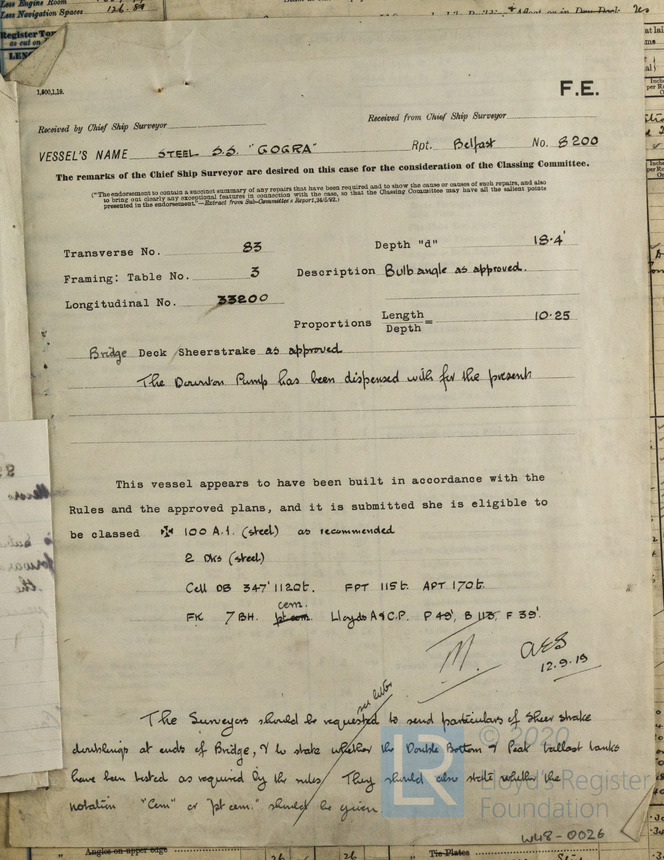 Less Engine Room
Less Navigation Spaces 126.89
Register Ton
as cut on
1,500,1,19.
F.E.
Received by Chief Ship Surveyor
Received from Chief Ship Surveyor
VESSEL'S NAME STEEL S.S. "GOGRA" Rpt. Belfast No. 8200
The remarks of the Chief Ship Surveyor are desired on this case for the consideration of the Classing Committee.
("The endorsement to contain a succinct summary of any repairs that have been required and to show the cause or causes of such repairs, and also
to bring out clearly any exceptional features in connection with the case, so that the Classing Committee may have all the salient points
presented in the endorsement."—Extract from Sub-Committee's Report, 24/5/92.)
Transverse No. 83 Depth "d" 18.4'
Framing: Table No. 3 Description Bulb angle as approved.
Longitudinal No. 33200
Proportions Length/Depth = 10.25
Bridge Deck Sheerstrake as approved
The Downton Pump has been dispensed with for the present
This vessel appears to have been built in accordance with the
Rules and the approved plans, and it is submitted she is eligible to
be classed ✠ 100 A.1. (steel) as recommended
2 Dks (steel)
Cell DB 347' 1120t. FPT 115t. APT 170t.
cem.
FK 7 BH. pt cem. Lloyds A & C.P. P 49', B 113', F 39'.
M. AES
12.9.19
see letter
The Surveyors should be requested to send particulars of Sheer strake
doublings at ends of Bridge, & to state whether the Double Bottom & Peak ballast tanks
have been tested as required by the rules. They should also state whether the
notation "Cem" or "pt cem." should be given
© 2020
LR Lloyd's Register
Foundation
W48-0026
Angles on upper edge
26 26
Tie Plates